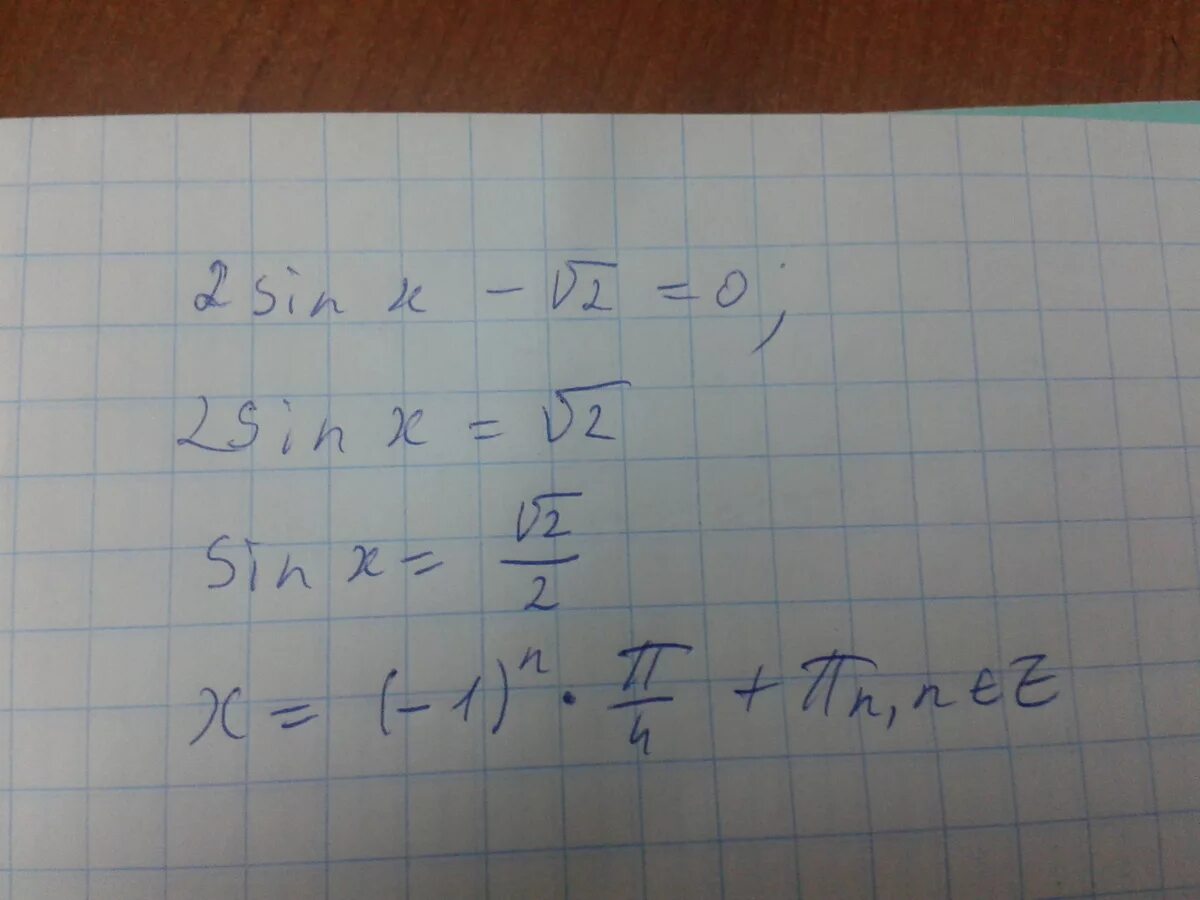 2 sin x - √2 = 0;
2 sin x = √2
sin x = √2/2
x = (-1)^n · π/4 + πn, n ∈ Z